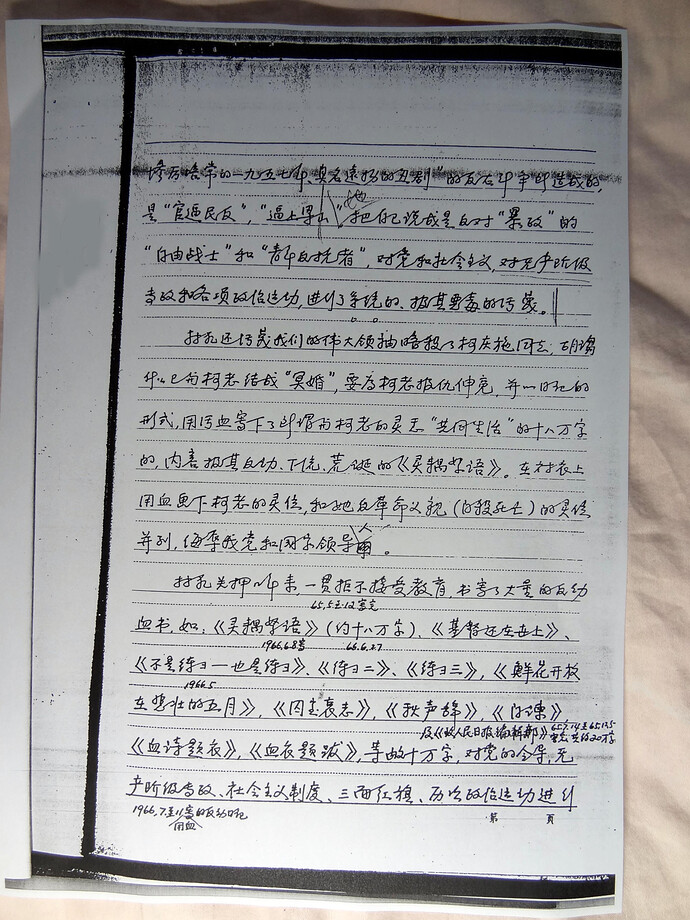 惨厉啼常的一九五七年、臭名远扬的丑剧”的反右斗争所造成的，
是“官逼民反”，“逼上梁山”。她把自己说成是反对“暴政”的
“自由战士”和“青年反抗者”，对党和社会主义，对无产阶级
专政和各项政治运动，进行了系统的、极其恶毒的污蔑。
林犯还污蔑我们的伟大领袖暗杀了柯庆施同志，胡诌
什么已与柯老结成“冥婚”，要为柯老报仇伸冤，并以日记的
形式，用污血写下了所谓与柯老的灵魂“共同生活”的十八万字
的，内容极其反动、下流、荒诞的《灵耦絮语》。在衬衣上
用血画下柯老的灵位，和她反革命父亲（自杀死亡）的灵位
并列，侮辱我党和国家领导人。
林犯关押以来，一贯拒不接受教育，书写了大量的反动
65,5至12写完
血书，如：《灵耦絮语》（约十八万字）、《基督还在世上》、
1966.6.8写 66.6.27
《不是练习一也是练习》、《练习二》、《练习三》，《鲜花开放
1966.5
在悲壮的五月》，《囚室哀志》，《秋声辞》，《自诔》
及《致人民日报编辑部》65.7.14至65.12.5写完 共约20万字
《血诗题衣》，《血衣题跋》，等数十万字，对党的领导、无
产阶级专政、社会主义制度、三面红旗、历次政治运动进行
1966.7至11写的反动日记
用血
第 页